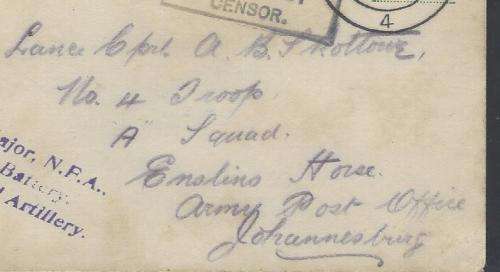 CENSOR.
4
Lance Cprl. A. B. Shottouz,
No. 4 Troop
"A" Squad.
Enslins Horse.
Army Post Office
Johannesburg
ajor, N.F.A.,
Battery.
Artillery.